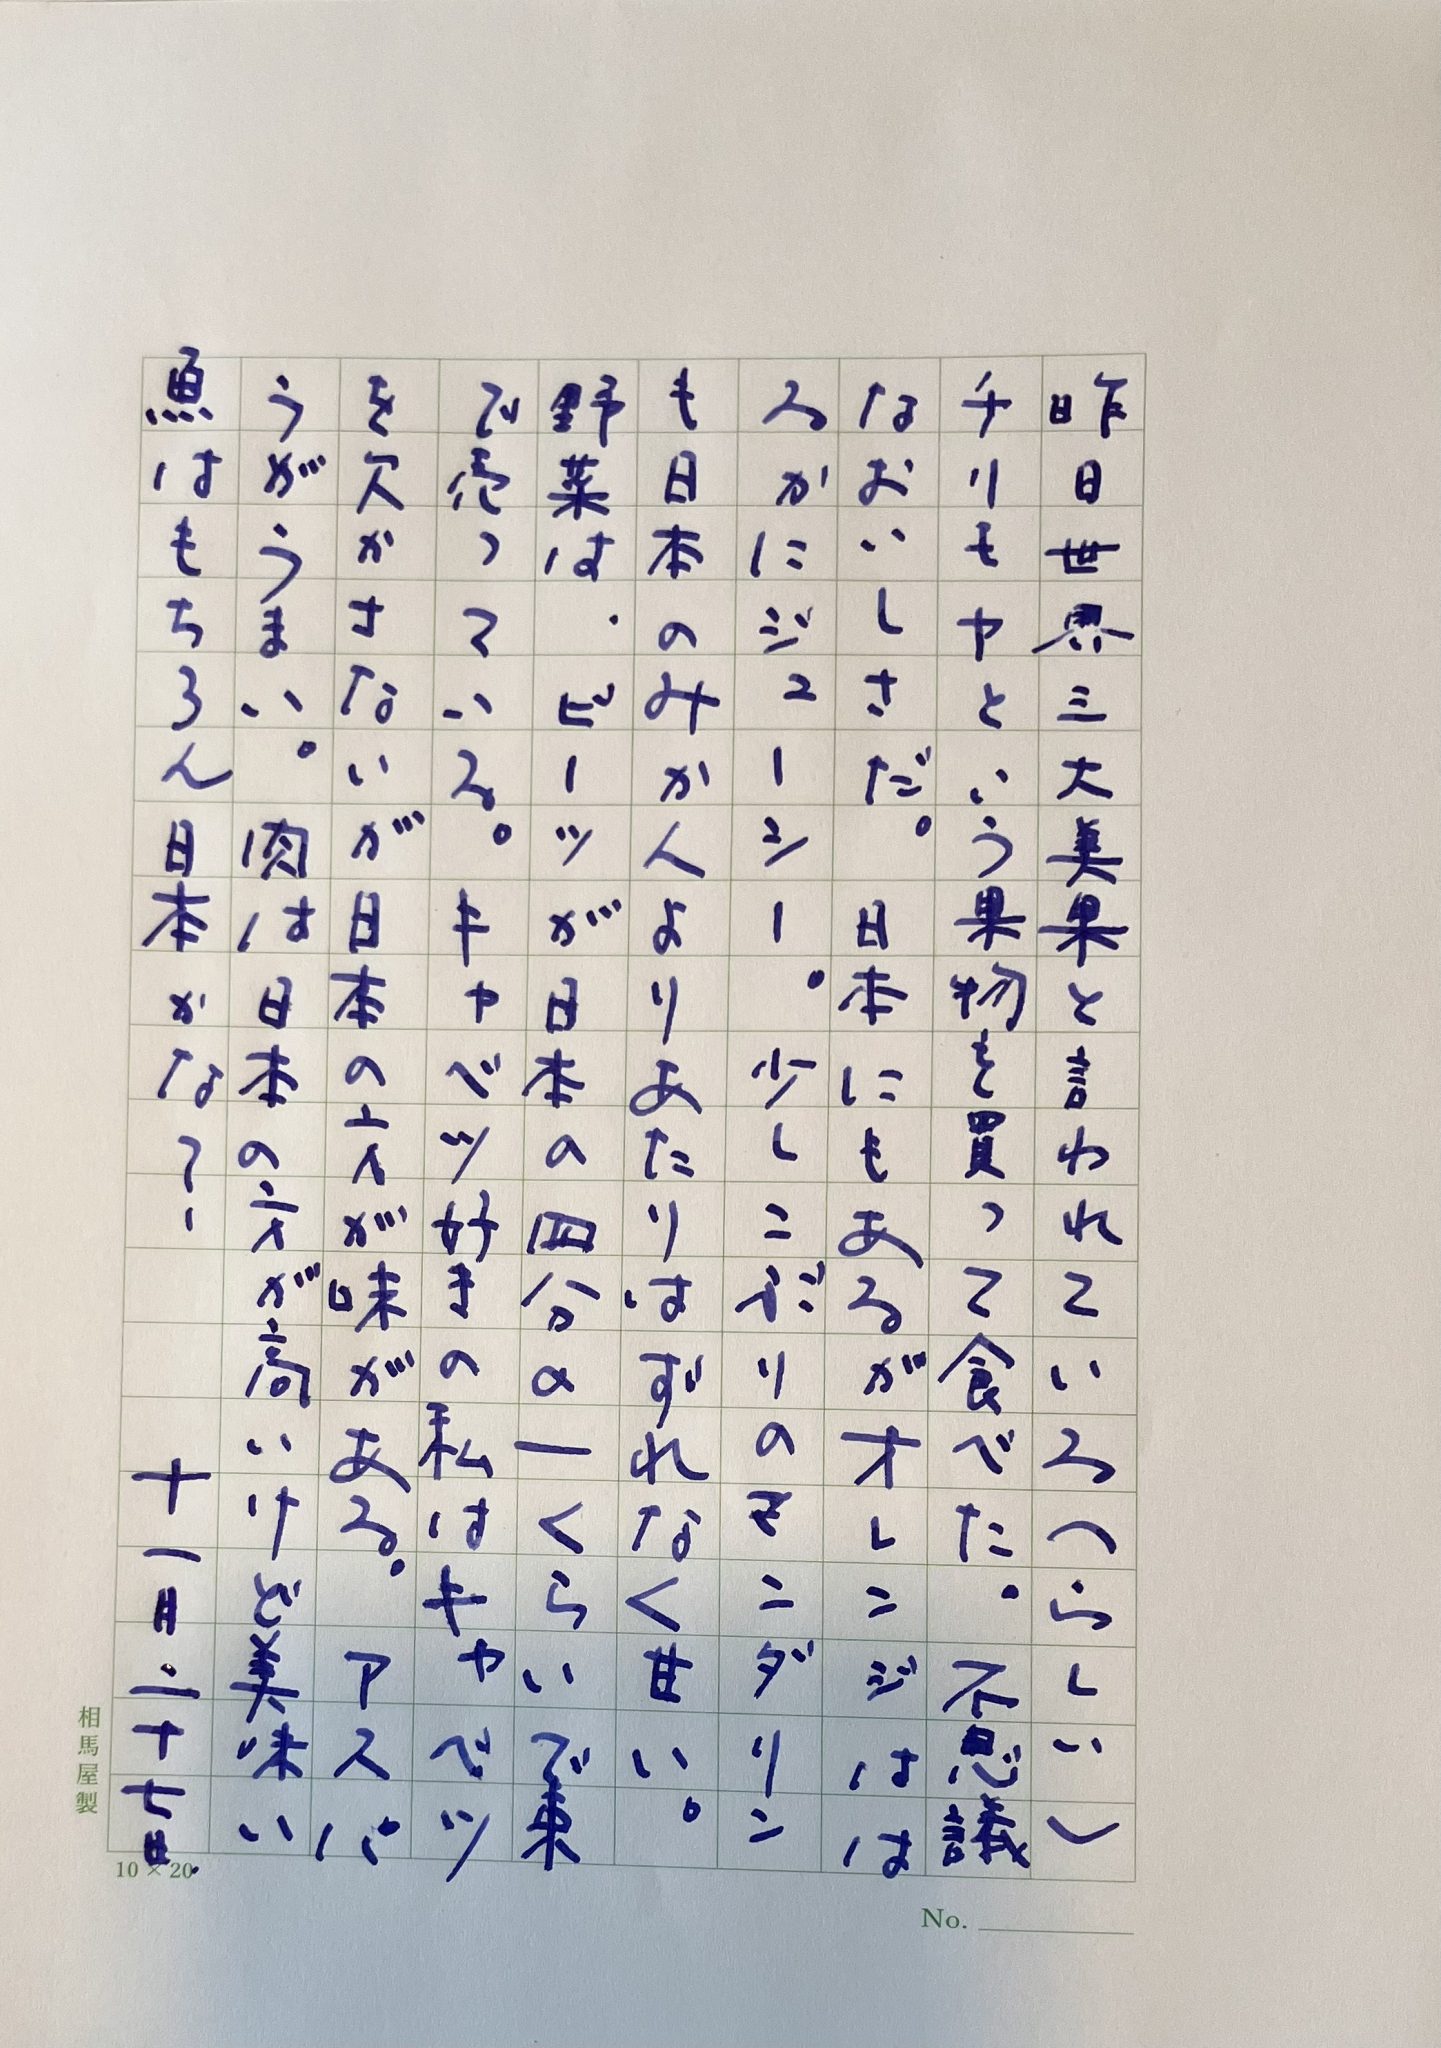 昨日世界三大美果と言われているつらしいし
チリモヤという果物を買って食べた。不思議
なおいしさだ。日本にもあるがオレンジはは
るかにジューシー。少しこぶりのマンダリン
も日本のみかんよりあたりはずれなく甘い。
野菜は、ビーツが日本の四分の一くらいで東
で売っている。キャベツ好きの私はキャベツ
を欠かさないが日本の方が味がある。アスパ
うがうまい。肉は日本の方が高いけど美味い
魚はもちろん日本かなてー
十一月二十七日.
相馬屋製
10×20
No.